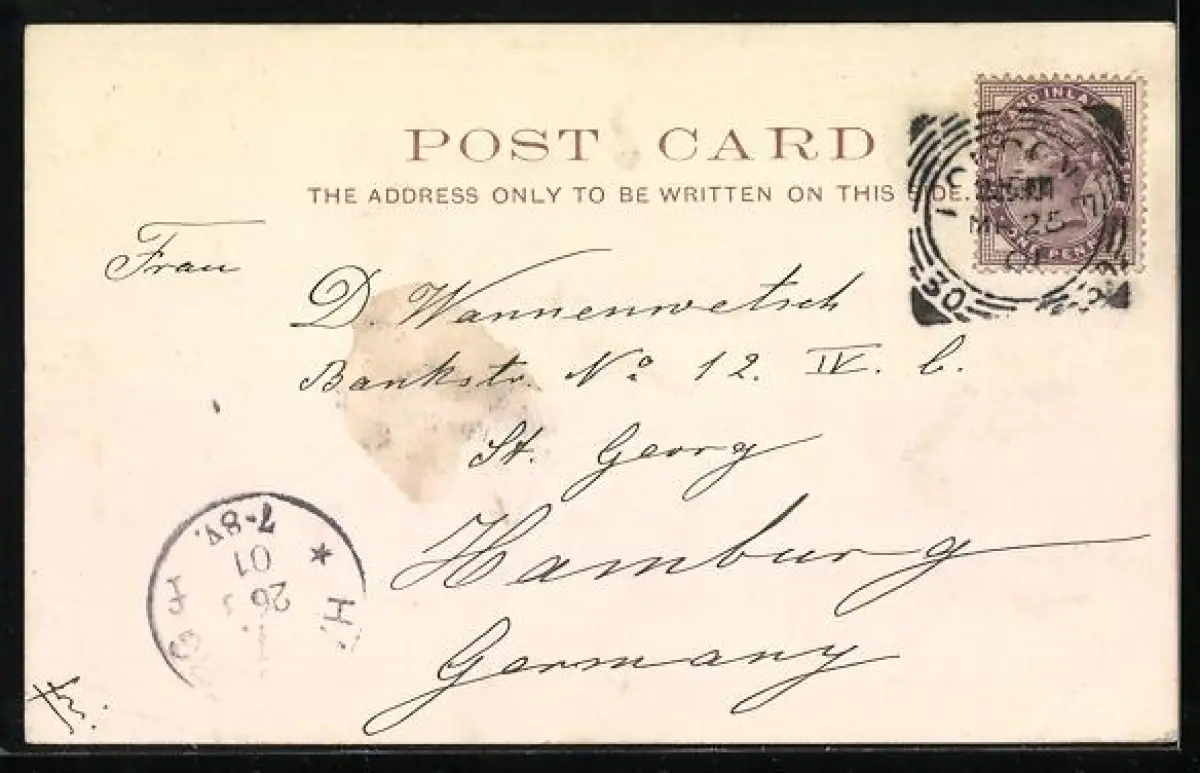 POST CARD
THE ADDRESS ONLY TO BE WRITTEN ON THIS SIDE.
Frau
D. Wannenwetsch
Bankstr. No 12. IV. C.
St. Georg
Hamburg
Germany
LONDON
MR 25
01
30
AND INLA
ONE PENNY
7-8V.
01
26